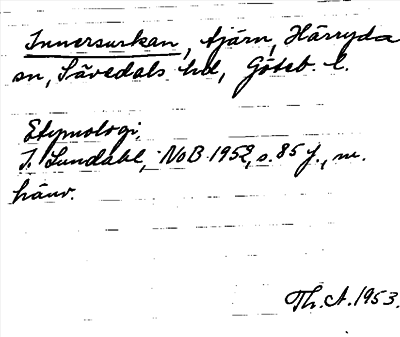 Innersurkan, tjärn, Härryda
sn, Sävedals hd, Göteb. l.
Etymologi.
I. Lundahl, NoB 1952, s. 85 f., m.
hänv.
Th. A. 1953.